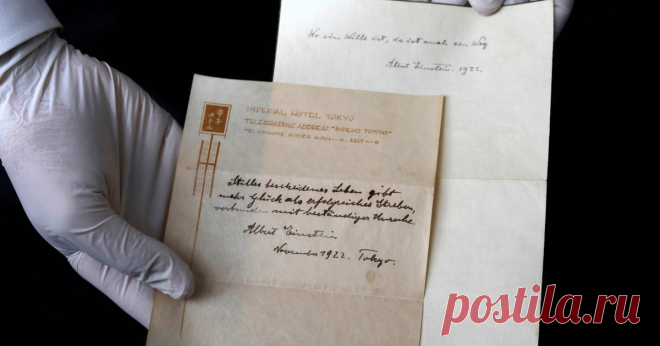 Wo ein Wille ist, da ist auch ein Weg.
Albert Einstein. 1922.
帝国
ホテル
IMPERIAL HOTEL TOKYO
TELEGRAPHIC ADDRESS "IMPEHO TOKYO"
Stilles bescheidenes Leben gibt
mehr Glück als erfolgreiches Streben,
verbunden mit beständiger Unruhe.
Albert Einstein.
November 1922. Tokyo.
postila.ru